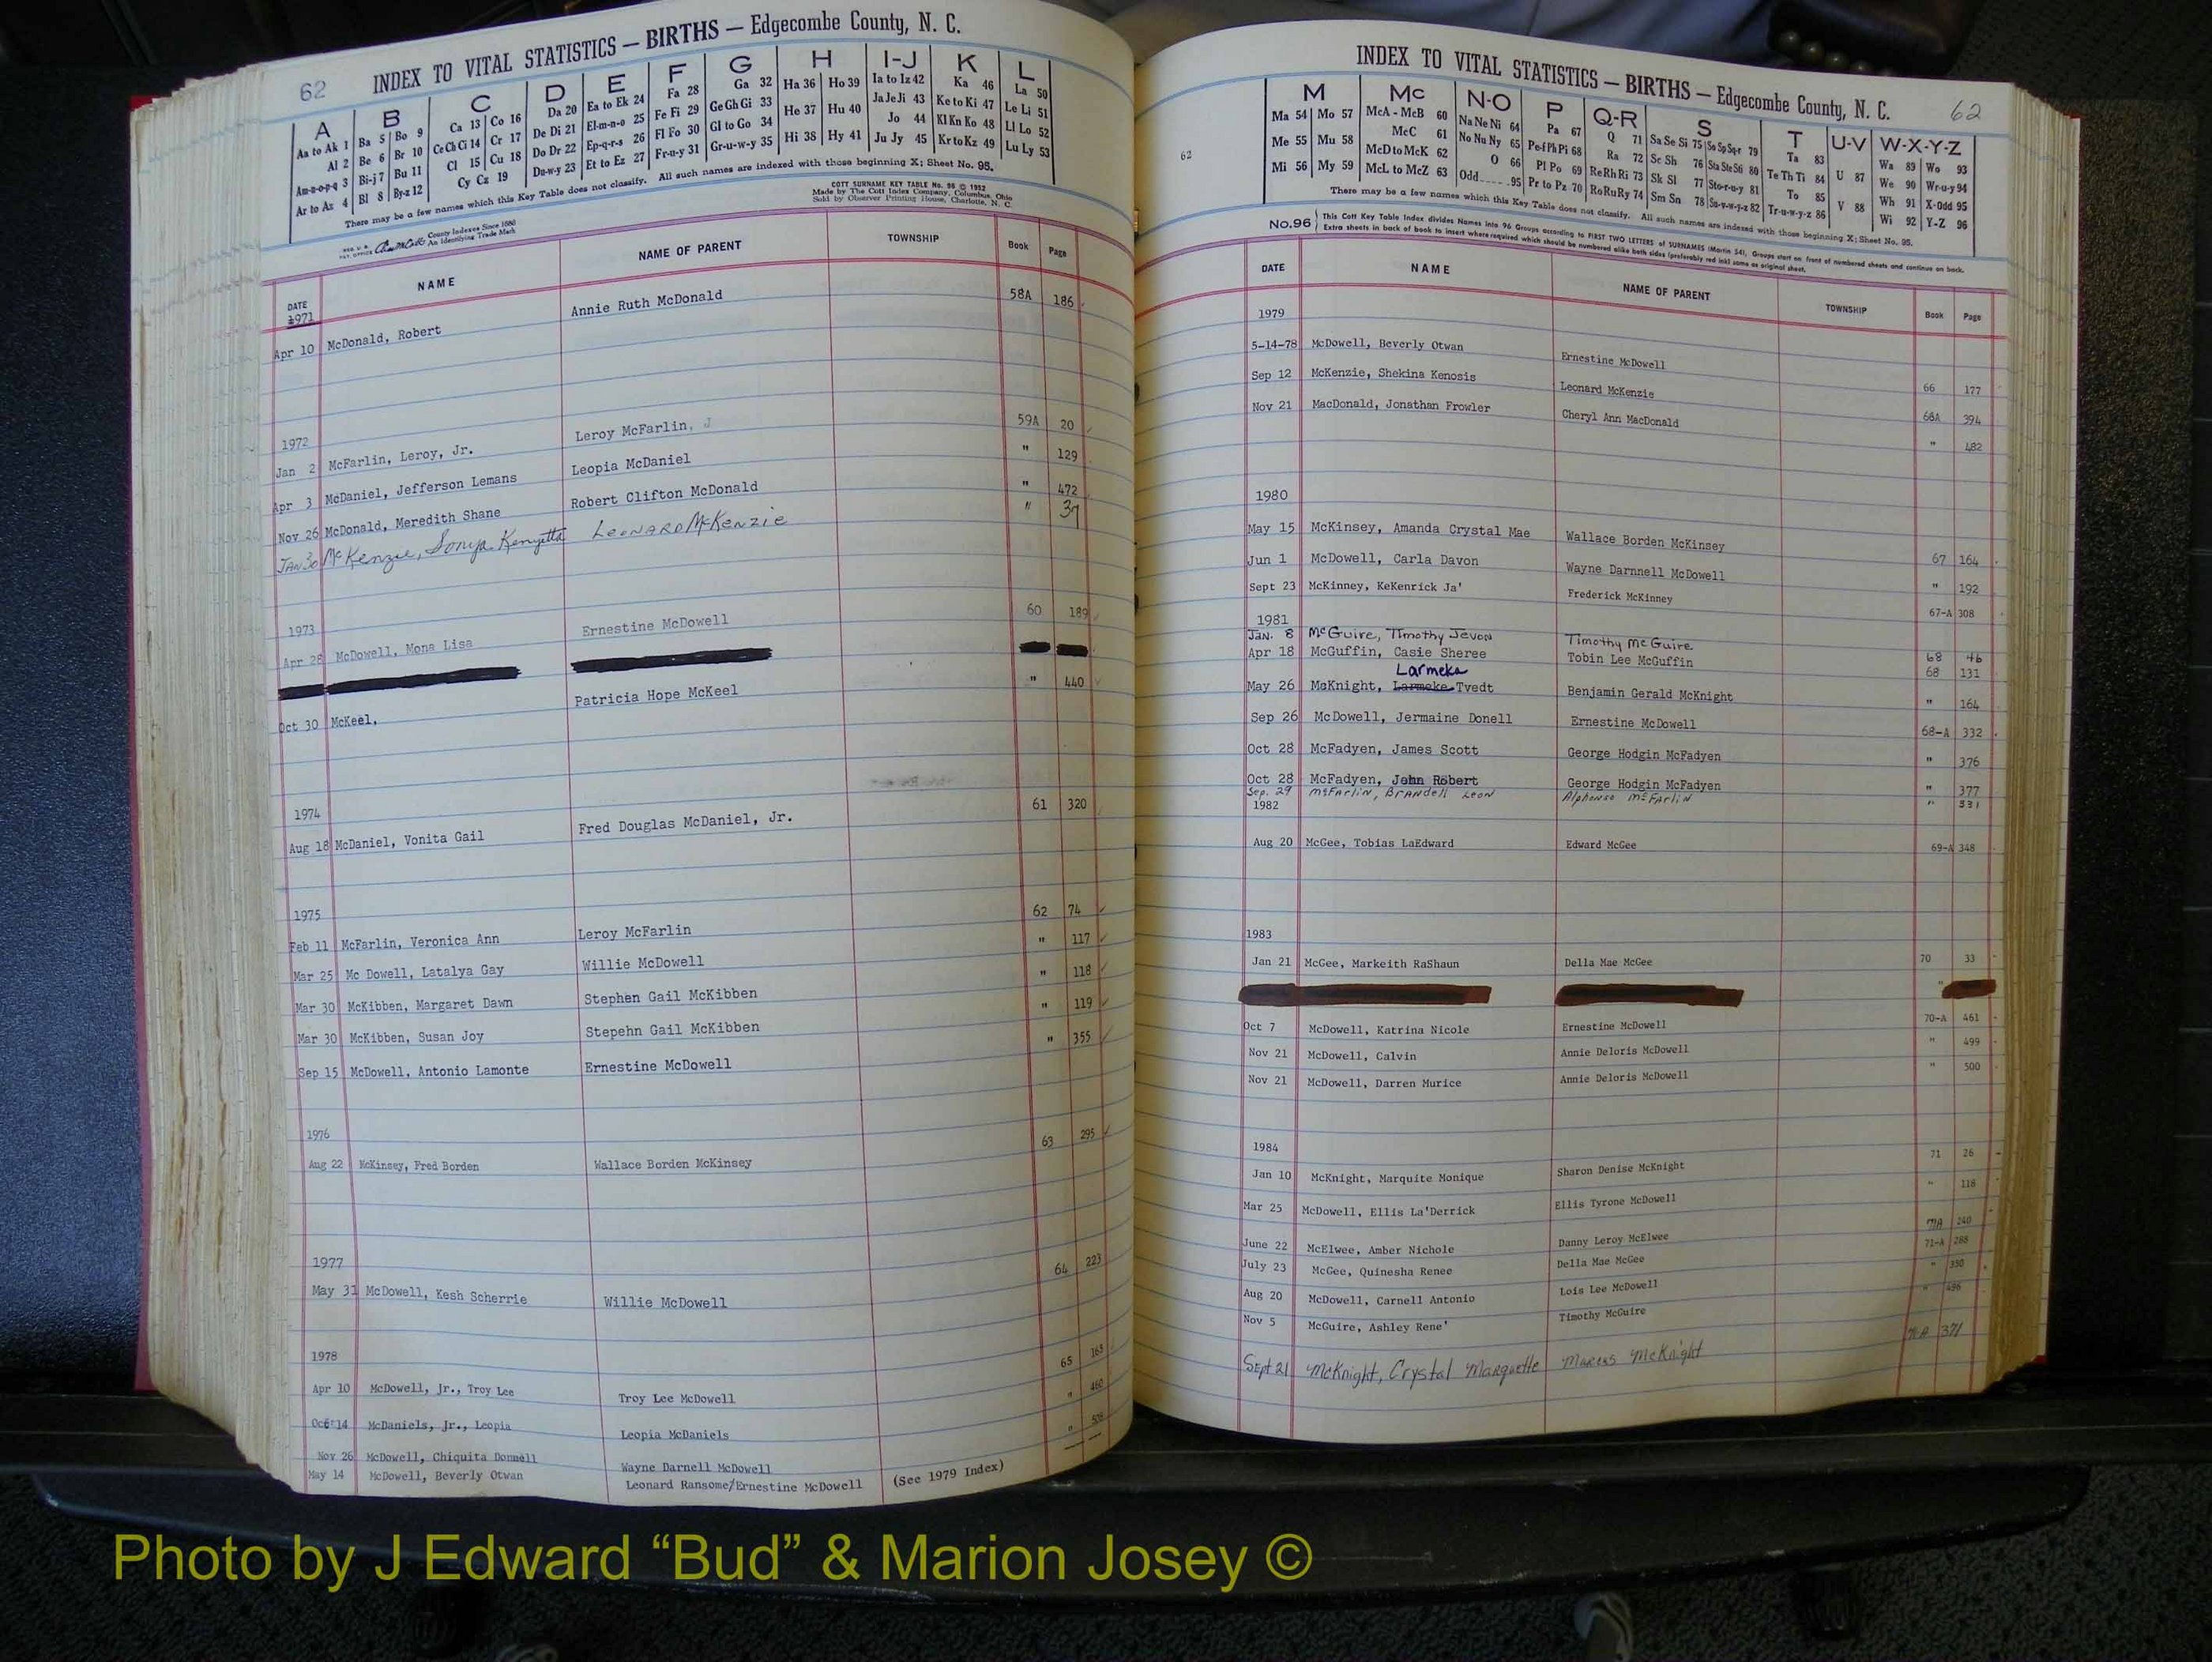 62 INDEX TO VITAL STATISTICS — BIRTHS — Edgecombe County, N. C.
A B C D E F G H I-J K L
Aa to Ak 1 Ba 5 Bo 9 Ca 13 Co 16 Da 20 Ea to Ek 24 Fa 28 Ga 32 Ha 36 Ho 39 Ia to Iz 42 Ka 46 La 50
Al 2 Be 6 Br 10 Ce Ch Ci 14 Cr 17 De Di 21 El-m-n-o 25 Fe Fi 29 Ge Gh Gi 33 He 37 Hu 40 Ja Je Ji 43 Ke to Ki 47 Le Li 51
Am-n-o-p-q 3 Bi-j 7 Bu 11 Cl 15 Cu 18 Do Dr 22 Ep-q-r-s 26 Fl Fo 30 Gl to Go 34 Hi 38 Hy 41 Jo 44 Kl Kn Ko 48 Ll Lo 52
Ar to Az 4 Bl 8 By-z 12 Cy Cz 19 Du-w-y 23 Et to Ez 27 Fr-u-y 31 Gr-u-w-y 35 Ju Jy 45 Kr to Kz 49 Lu Ly 53
There may be a few names which this Key Table does not classify. All such names are indexed with those beginning X; Sheet No. 95.
County Indexes Since 1888
An Identifying Trade Mark
COTT SURNAME KEY TABLE No. 96 © 1932
Made by The Cott Index Company, Columbus, Ohio
Sold by Observer Printing House, Charlotte, N. C.
DATE NAME NAME OF PARENT TOWNSHIP Book Page
1971
Apr 10 McDonald, Robert Annie Ruth McDonald 58A 186
1972
Jan 2 McFarlin, Leroy, Jr. Leroy McFarlin, J 59A 20
Apr 3 McDaniel, Jefferson Lemans Leopia McDaniel " 129
Nov 26 McDonald, Meredith Shane Robert Clifton McDonald " 472
JAN 30 McKenzie, Sonya Kenyetta LEONARD McKENZIE " 37
1973
Apr 28 McDowell, Mona Lisa Ernestine McDowell 60 189
Oct 30 McKeel, Patricia Hope McKeel " 440
1974
Aug 18 McDaniel, Vonita Gail Fred Douglas McDaniel, Jr. 61 320
1975
Feb 11 McFarlin, Veronica Ann Leroy McFarlin 62 74
Mar 25 Mc Dowell, Latalya Gay Willie McDowell " 117
Mar 30 McKibben, Margaret Dawn Stephen Gail McKibben " 118
Mar 30 McKibben, Susan Joy Stepehn Gail McKibben " 119
Sep 15 McDowell, Antonio Lamonte Ernestine McDowell " 355
1976
Aug 22 McKinsey, Fred Borden Wallace Borden McKinsey 63 295
1977
May 31 McDowell, Kesh Scherrie Willie McDowell 64 223
1978
Apr 10 McDowell, Jr., Troy Lee Troy Lee McDowell 65 163
Oct 14 McDaniels, Jr., Leopia Leopia McDaniels " 460
Nov 26 McDowell, Chiquita Donnell Wayne Darnell McDowell " 508
May 14 McDowell, Beverly Otwan Leonard Ransome/Ernestine McDowell (See 1979 Index)
INDEX TO VITAL STATISTICS — BIRTHS — Edgecombe County, N. C. 62
62
M Mc N-O P Q-R S T U-V W-X-Y-Z
Ma 54 Mo 57 McA - McB 60 Na Ne Ni 64 Pa 67 Q 71 Sa Se Si 75 So Sp Sq-r 79 Ta 83 Wa 89 Wo 93
Me 55 Mu 58 McC 61 No Nu Ny 65 Pe-f Ph Pi 68 Ra 72 Sc Sh 76 Sta Ste S6 80 Te Th Ti 84 U 87 We 90 Wr-u-y 94
Mi 56 My 59 McD to McK 62 O 66 Pl Po 69 Re Rh Ri 73 Sk Sl 77 Sto-r-u-y 81 To 85 Wh 91 X-Odd 95
McL to McZ 63 Odd 95 Pr to Pz 70 Ro Ru Ry 74 Sm Sn 78 Su-v-w-y-z 82 Tr-u-w-y-z 86 V 88 Wi 92 Y-Z 96
There may be a few names which this Key Table does not classify. All such names are indexed with those beginning X; Sheet No. 95.
No. 96 This Cott Key Table Index divides Names into 96 Groups according to FIRST TWO LETTERS of SURNAMES (Martin 54). Groups start on front of numbered sheets and continue on back.
Extra sheets in back of book to insert where required which should be numbered alike both sides (preferably red ink) same as original sheet.
DATE NAME NAME OF PARENT TOWNSHIP Book Page
1979
5-14-78 McDowell, Beverly Otwan Ernestine McDowell 66 177
Sep 12 McKenzie, Shekina Kenosis Leonard McKenzie 68A 394
Nov 21 MacDonald, Jonathan Frowler Cheryl Ann MacDonald " 482
1980
May 15 McKinsey, Amanda Crystal Mae Wallace Borden McKinsey 67 164
Jun 1 McDowell, Carla Davon Wayne Darnnell McDowell " 192
Sept 23 McKinney, KeKenrick Ja' Frederick McKinney 67-A 308
1981
JAN. 8 McGuire, Timothy Jevon Timothy McGuire 68 46
Apr 18 McGuffin, Casie Sheree Tobin Lee McGuffin 68 131
Larmeka
May 26 McKnight, Larmoke Tvedt Benjamin Gerald McKnight " 164
Sep 26 McDowell, Jermaine Donell Ernestine McDowell 68-A 332
Oct 28 McFadyen, James Scott George Hodgin McFadyen " 376
Oct 28 McFadyen, John Robert George Hodgin McFadyen " 377
Sep. 29 McFarlin, Brandell Leon Alphonso McFarlin " 331
1982
Aug 20 McGee, Tobias LaEdward Edward McGee 69-A 348
1983
Jan 21 McGee, Markeith RaShaun Della Mae McGee 70 33
"
Oct 7 McDowell, Katrina Nicole Ernestine McDowell 70-A 461
Nov 21 McDowell, Calvin Annie Deloris McDowell " 499
Nov 21 McDowell, Darren Murice Annie Deloris McDowell " 500
1984
Jan 10 McKnight, Marquite Monique Sharon Denise McKnight 71 26
Mar 25 McDowell, Ellis La'Derrick Ellis Tyrone McDowell " 118
June 22 McElwee, Amber Nichole Danny Leroy McElwee 71A 240
July 23 McGee, Quinesha Renee Della Mae McGee 71-A 288
Aug 20 McDowell, Carnell Antonio Lois Lee McDowell " 330
Nov 5 McGuire, Ashley Rene' Timothy McGuire " 496
Sept 21 McKnight, Crystal Marquette Marcus McKnight 71A 371
Photo by J Edward “Bud” & Marion Josey ©